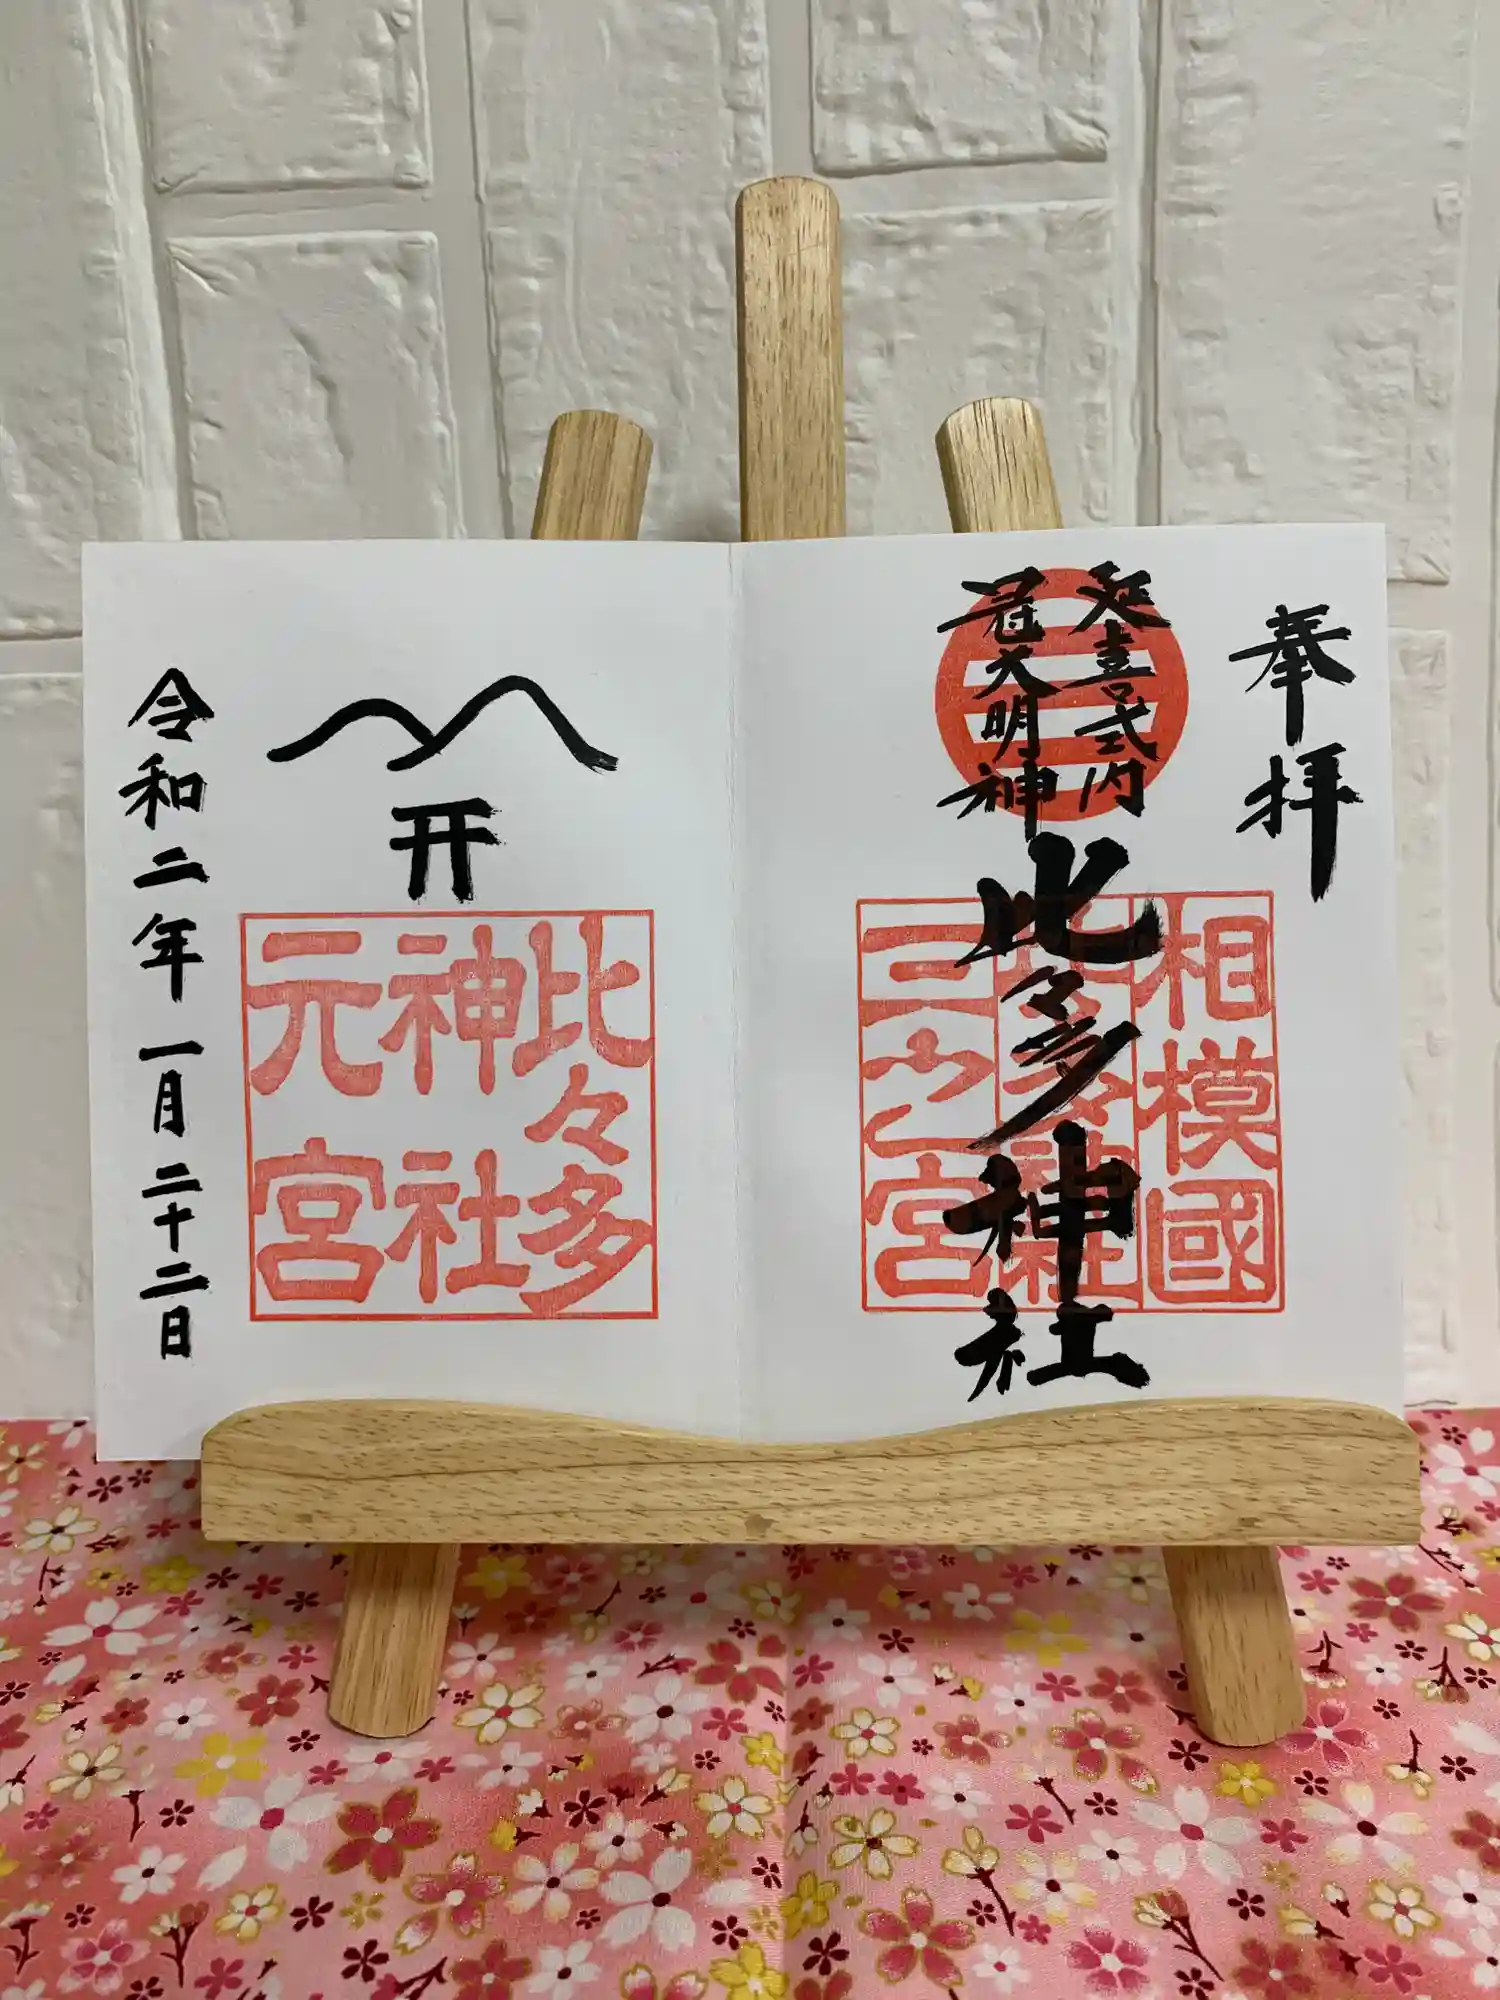 奉拝
延喜式内
冠大明神
比々多神社
相模國
比々多神社
三之宮
比々多
神社
元宮
令和二年一月二十二日